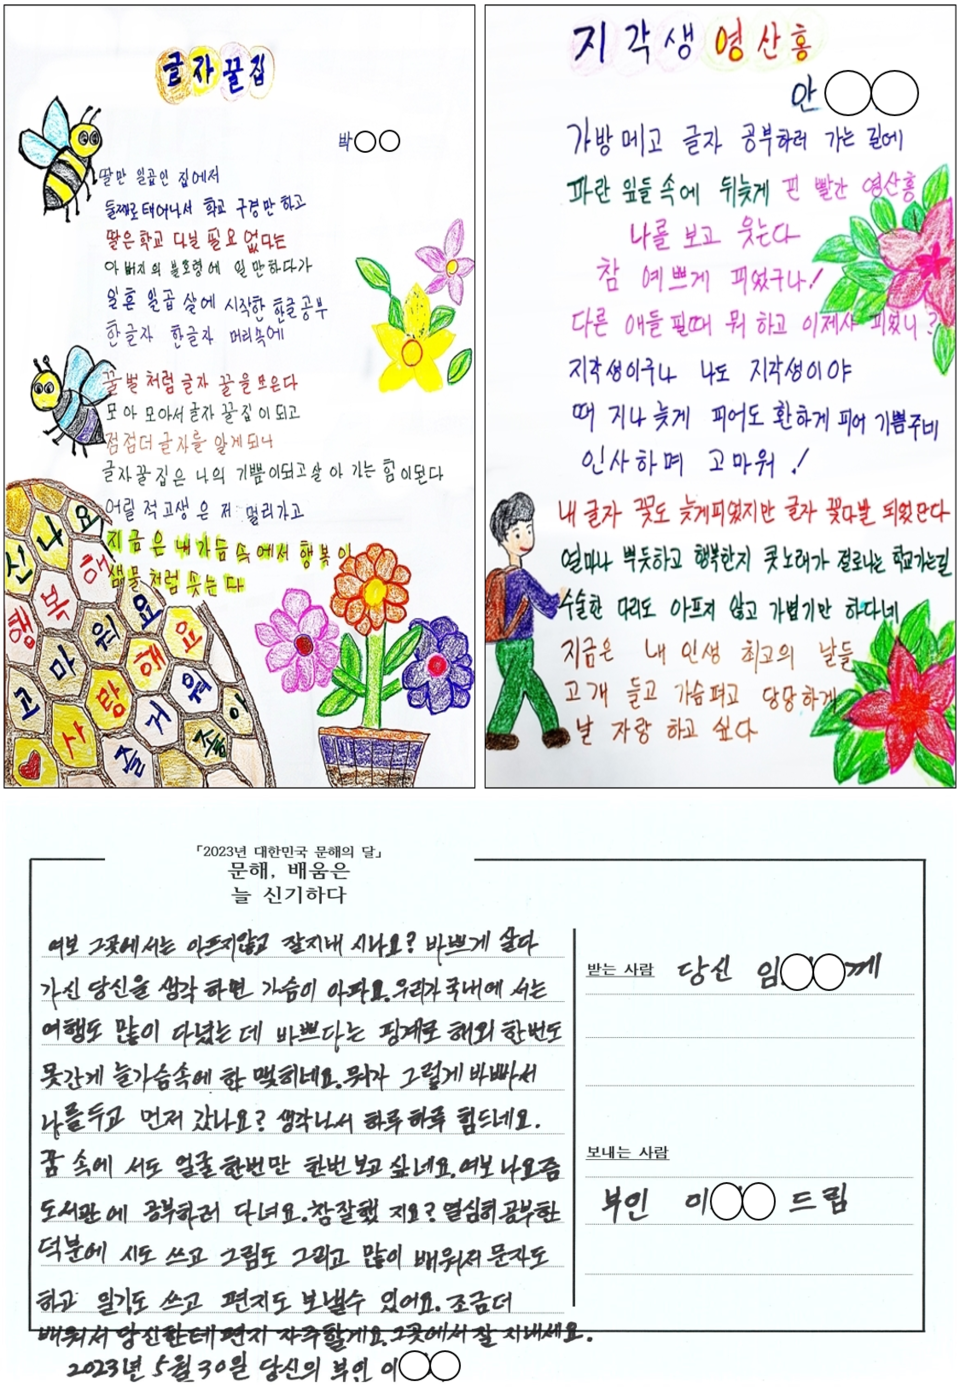 글자꿀집
박○○
딸만 일곱인 집에서
둘째로 태어나서 학교 구경만 하고
딸은 학교 다닐 필요 없다는
아버지의 불호령에 일만하다가
일흔 일곱 살에 시작한 한글공부
한글자 한글자 머리속에
꿀벌처럼 글자 꿀을 모은다
모아 모아서 글자 꿀집이 되고
점점더 글자를 알게되니
글자꿀집은 나의 기쁨이되고 살아가는 힘이된다
어릴적고생은 저 멀리가고
지금은 내가슴 속에서 행복이
샘물처럼 솟는다
신나요
행복해
고마워요
사랑해요
즐거워
좋아
지각생 영산홍
안○○
가방메고 글자 공부하러 가는 길에
파란 잎들 속에 뒤늦게 핀 빨간 영산홍
나를 보고 웃는다
참 예쁘게 피었구나!
다른 애들 필때 뭐 하고 이제사 피었니?
지각생이구나 나도 지각생이야
때 지나 늦게 피어도 환하게 피어 기쁨주네
인사하며 고마워!
내 글자 꽃도 늦게피었지만 글자 꽃다발 되었단다
얼마나 뿌듯하고 행복한지 콧노래가 절로나는 학교가는길
수술한 다리도 아프지 않고 가볍기만 하다네
지금은 내 인생 최고의 날들
고개 들고 가슴펴고 당당하게
날 자랑 하고 싶다
「2023년 대한민국 문해의 달」
문해, 배움은
늘 신기하다
여보 그곳에서는 아프지않고 잘지내 시나요? 바쁘게 살다
가신 당신을 생각 하면 가슴이 아파요. 우리가 국내에 서는
여행도 많이 다녔는 데 바쁘다는 핑계로 해외 한번도
못간게 늘가슴속에 한 맺히네요. 뭐가 그렇게 바빠서
나를두고 먼저 갔나요? 생각나서 하루하루 힘드네요.
꿈 속에 서도 얼굴 한번만 한번 보고 싶네요. 여보 나요즘
도서관에 공부하러 다녀요. 참잘했 지요? 열심히 공부한
덕분에 시도 쓰고 그림도 그리고 많이 배워서 문자도
하고 일기도 쓰고 편지도 보낼수 있어요. 조금더
배워서 당신한테 편지 자주할게요. 그곳에서 잘 지내세요.
2023년 5월 30일 당신의 부인 이○○
받는 사람 당신 임○○께
보내는 사람
부인 이○○ 드림